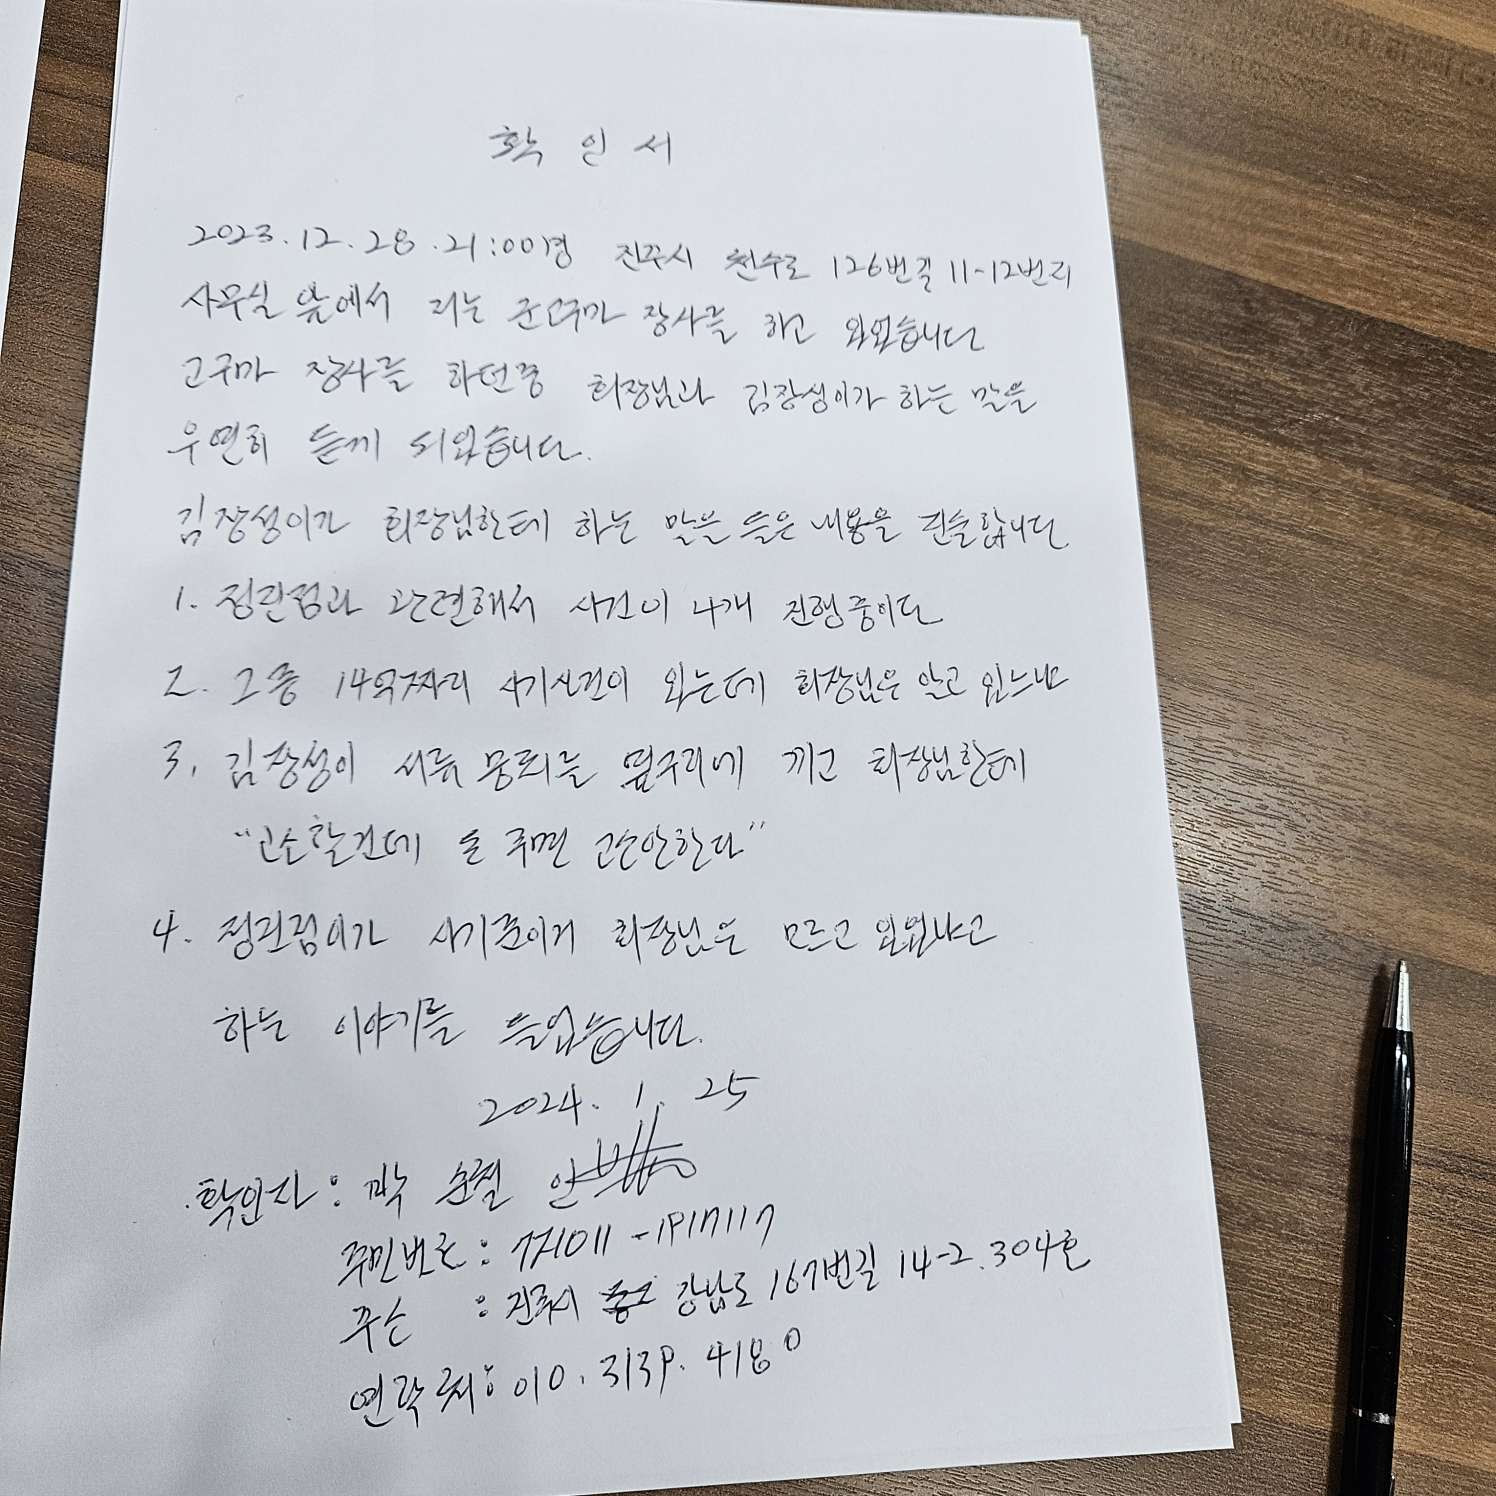 확 인 서
2023.12.28.21:00경 진주시 천수로 126번길 11-12번지
사무실 앞에서 저는 군고구마 장사를 하고 있었습니다
고구마 장사를 하던중 회장님과 김장성이가 하는 말을
우연히 듣게 되었습니다.
김장성이가 회장님한테 하는 말을 들은 내용을 진술합니다
1. 정관점과 관련해서 사건이 4개 진행중이다
2. 그중 14억짜리 사기사건이 있는데 회장님은 알고 있느냐
3. 김장성이 서류 뭉치를 옆구리에 끼고 회장님한테
"고소할건데 돈 주면 고소안한다"
4. 사기꾼이거 회장님은 모르고 있었냐고
하는 이야기를 들었습니다.
2024. 1. 25
확인자 : 박 순철
주민번호 : 771011-1917117
주소 : 진주시 강남로 167번길 14-2. 304호
연락처: 010.3139.4180